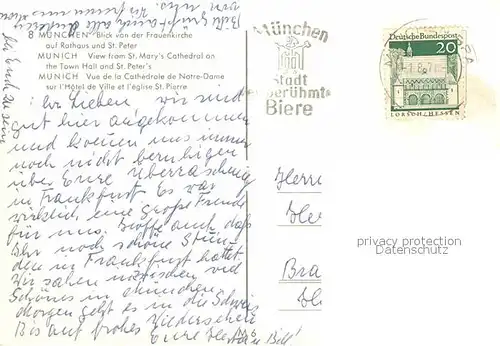 8 MÜNCHEN Blick von der Frauenkirche
auf Rathaus und St. Peter
MUNICH View from St. Mary's Cathedral on
the Town Hall and St. Peter's
MUNICH Vue de la Cathédrale de Notre-Dame
sur l'Hôtel de Ville et l'église St. Pierre
Ihr Lieben, wir sind
gut hier angekommen
und können uns immer
noch nicht beruhigen
über Eure Überraschung
in Frankfurt. Es war
wirklich eine große Freude
für uns. Hoffe auch daß
Ihr noch schöne Stun-
den in Frankfurt hattet.
Wir sahen inzwischen viel
Schönes in München
Morgen geht es in die Schweiz
Bis auf frohes Wiedersehen
Eure
Bill!
M 6
München
Stadt
berühmte
Biere
Deutsche Bundespost
20
LORSCH/HESSEN
Herrn
Bra
privacy protection
Datenschutz